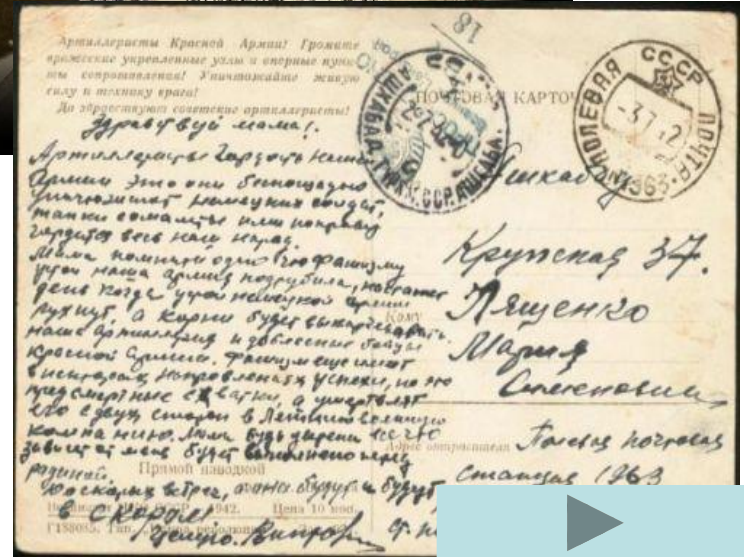 Артиллеристы Красной Армии! Громите
вражеские укрепленные узлы и опорные пунк-
ты сопротивления! Уничтожайте живую
силу и технику врага!
Да здравствуют советские артиллеристы!
18
ПОЧТОВАЯ КАРТОЧ
АШХАБАД. ТУРКМ. ССР. АШХАБАД.
СССР
ПОЛЕВАЯ ПОЧТА
-3.7.42
1963
Здравствуй мама!
Артиллеристы гордость нашей
армии это они беспощадно
уничтожают немецких солдат,
танки самолеты ими по праву
гордится весь наш народ.
Мама помни одно что фашизму
наша армия подрубила, настанет
день когда немецкой армии
рухнут, а корни будет выкорчевывать
наша артиллерия и доблестные бойцы
Красной Армии. Фашизм еще имеет
в некоторых направлениях успехи, но это
предсмертные схватки, а умертвят
его с двух сторон в Летнюю военную
компанию. Мама будь уверена все что
зависит от меня будет выполнено перед
родиной.
До скорых встреч, они будут и будут
в скором!
Виктор
Крупская 37.
Кому Лященко
Мария
Адрес отправителя Полевая почтовая
станция 1963
Прямой наводкой
1942. Цена 10 коп.